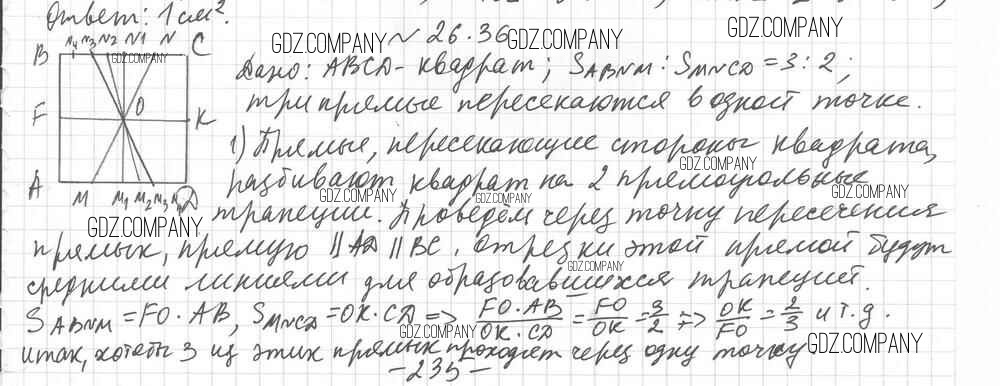 Ответ: 1 см².
N4 N3 N2 N1 N
B C
F O K
A M M1 M2 M3 D
GDZ.COMPANY
№ 26.36 GDZ.COMPANY
GDZ.COMPANY
GDZ.COMPANY
Дано: ABCD - квадрат; S ABNM : S MNCD = 3 : 2;
три прямые пересекаются в одной точке.
1) Прямые, пересекающие стороны квадрата,
GDZ.COMPANY
разбивают квадрат на 2 прямоугольные
GDZ.COMPANY GDZ.COMPANY GDZ.COMPANY
трапеции. Проведём через точку пересечения
GDZ.COMPANY
прямых, прямую || AD || BC. Отрезки этой прямой будут
GDZ.COMPANY
средними линиями для образовавшихся трапеций.
S ABNM = FO · AB, S MNCD = OK · CD => FO · AB / OK · CD = FO / OK = 3/2 => OK / FO = 2/3 и т.д.
GDZ.COMPANY
итак, хотябы 3 из этих прямых проходят через одну точку GDZ.COMPANY
- 235 -